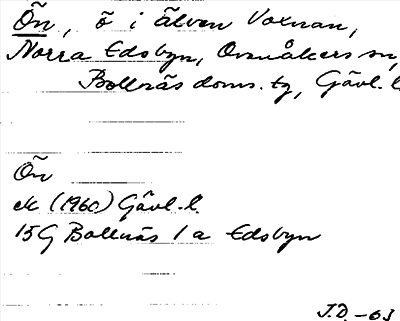 Ön, ö i älven Voxnan,
Norra Edsbyn, Ovanåkers sn,
Bollnäs doms. tg, Gävl. l
Ön
ek (1960) Gävl. l.
15G Bollnäs 1 a Edsbyn
J.D. -63